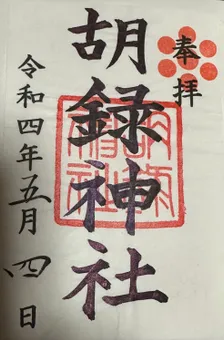 奉拝
胡録神社
令和四年五月四日